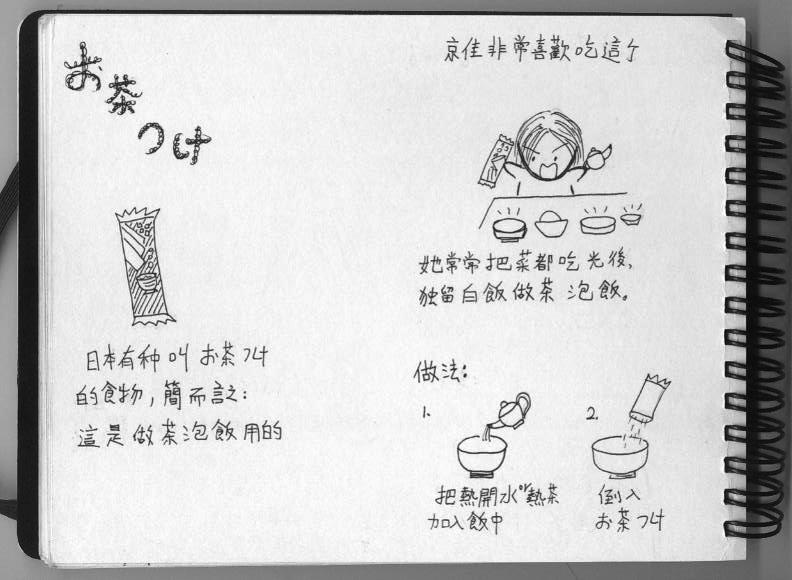 お茶
つけ
日本有种叫 お茶つけ
的食物，簡而言之：
這是做茶泡飯用的
京佳非常喜歡吃這个
她常常把菜都吃光後，
独留白飯做茶泡飯。
做法：
1.
把熱開水or熱茶
加入飯中
2.
倒入
お茶つけ